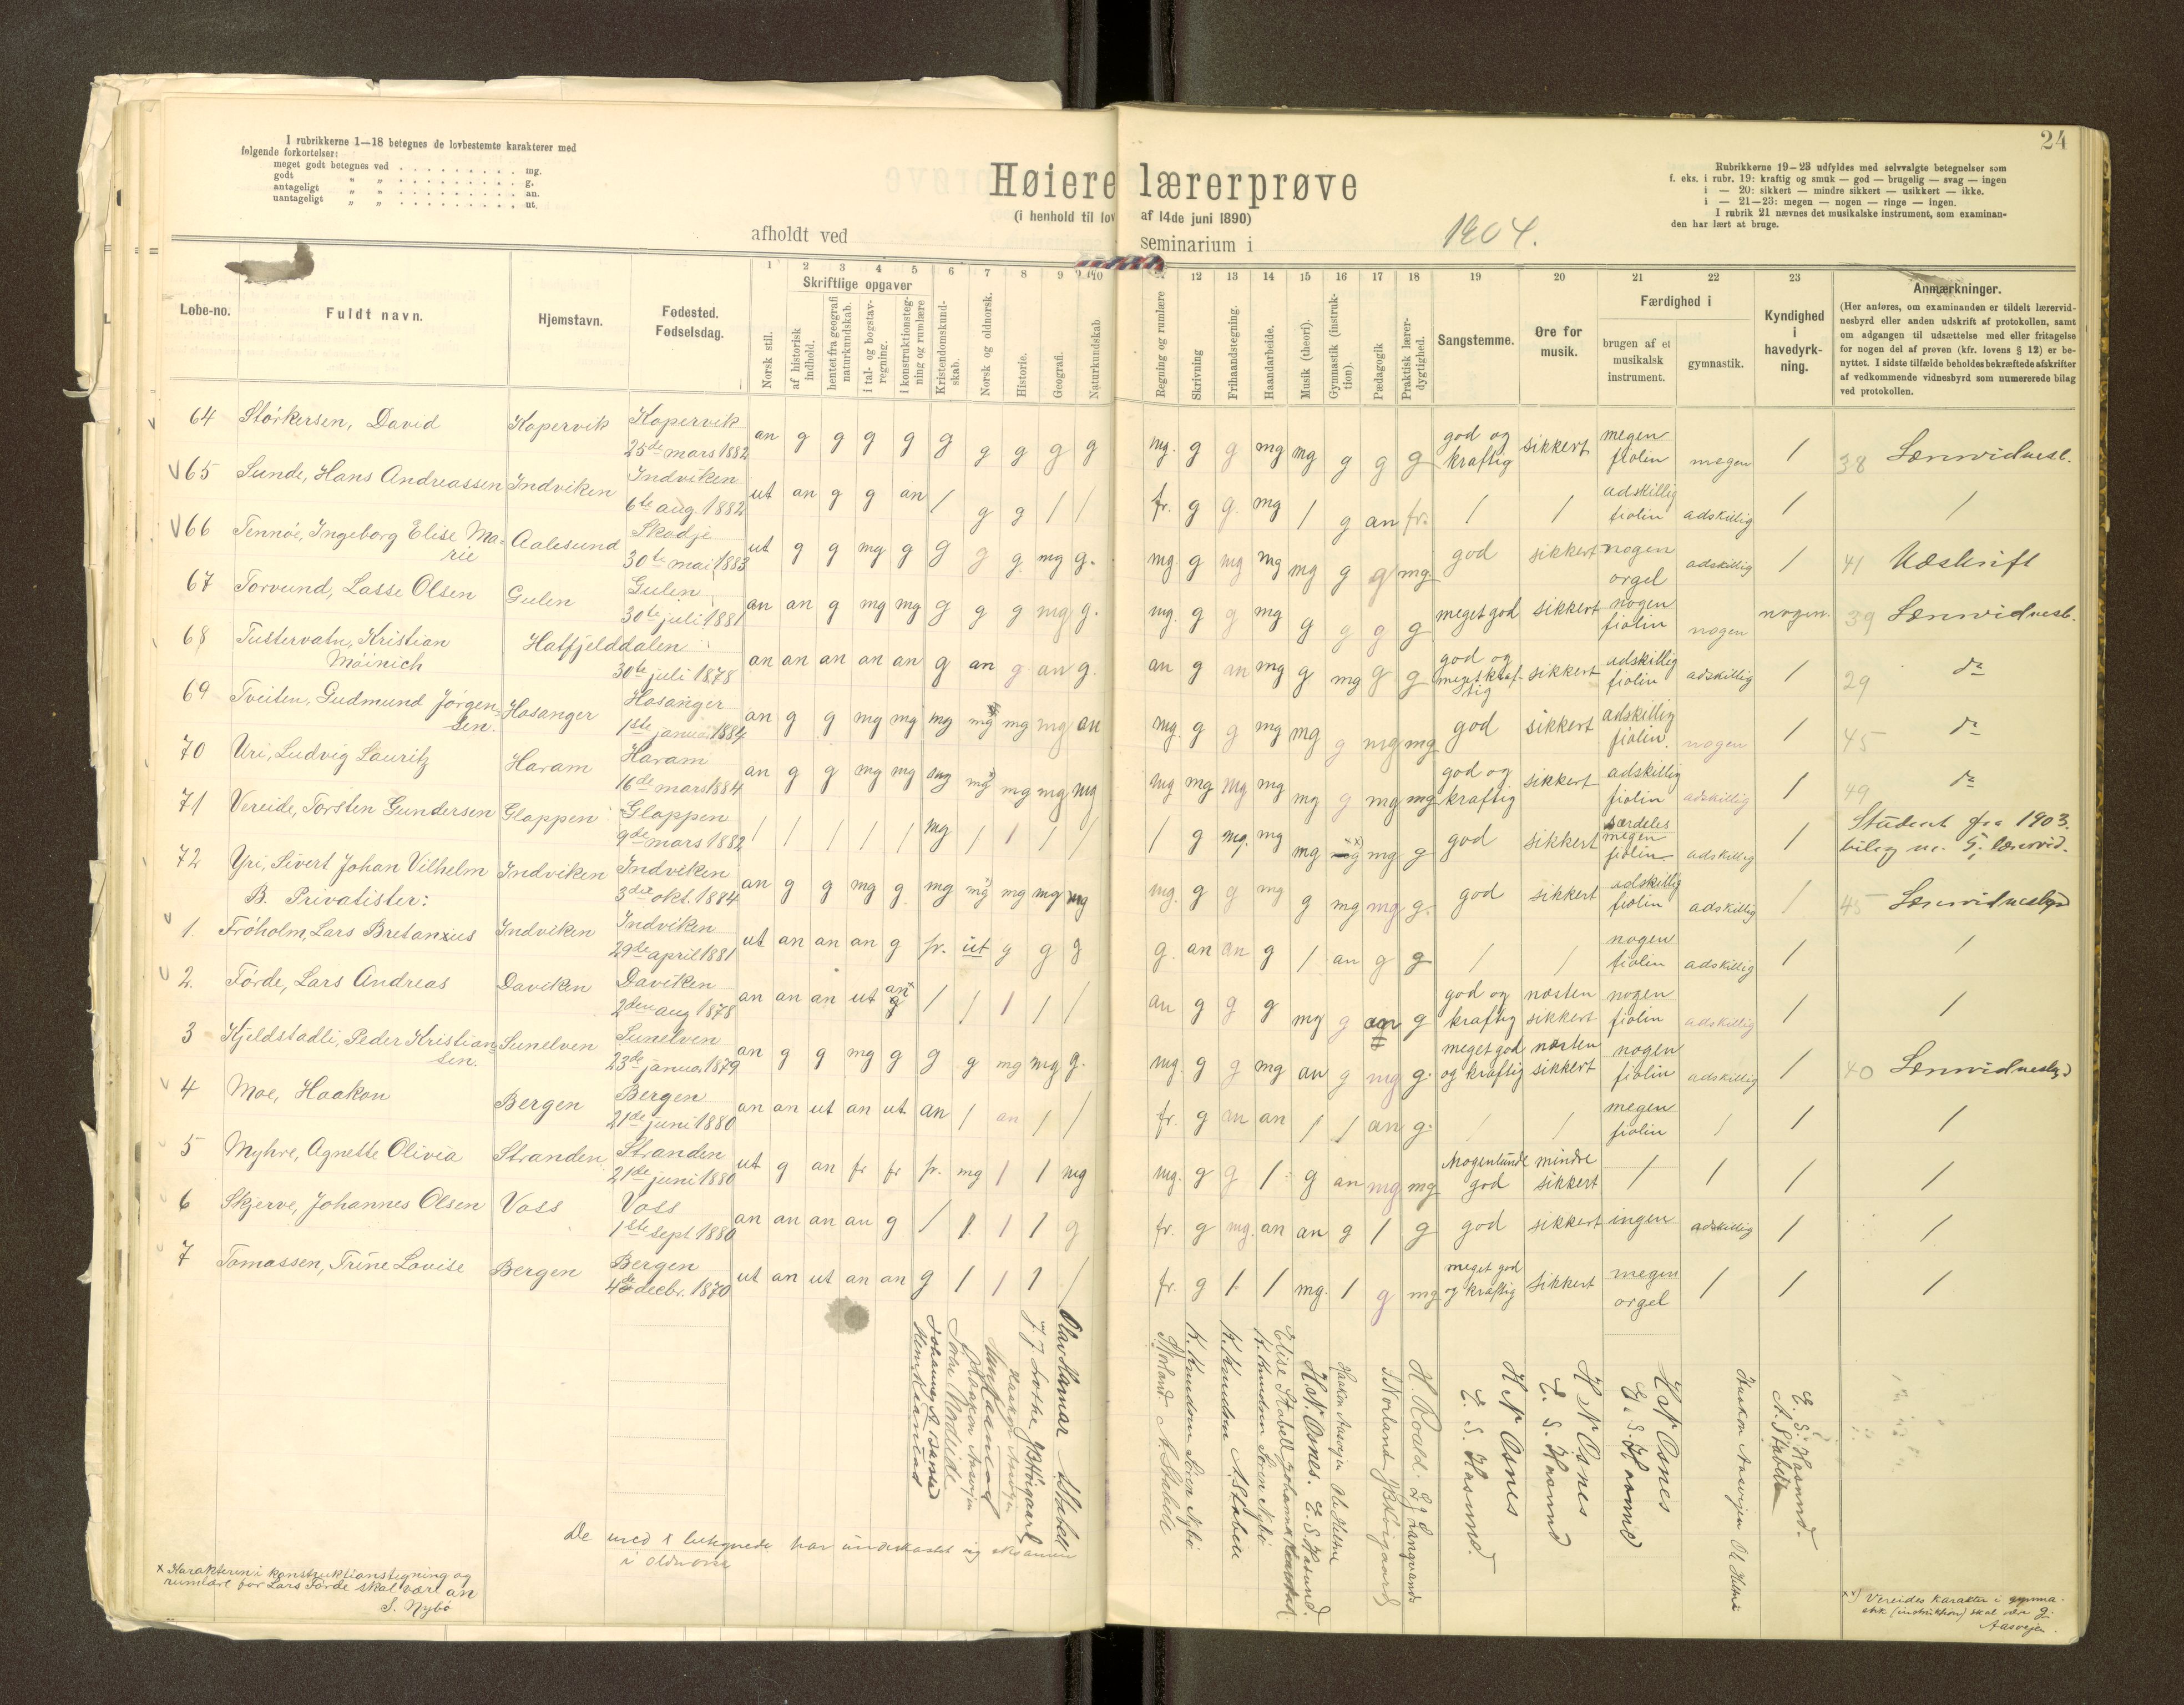 24
I rubrikkerne 1—18 betegnes de lovbestemte karakterer med
følgende forkortelser:
meget godt betegnes ved . . . . . . . . . mg.
godt " " . . . . . . . . . g.
antageligt " " . . . . . . . . . an.
uantageligt " " . . . . . . . . . ut.
Høiere lærerprøve
(i henhold til lov af 14de juni 1890)
afholdt ved seminarium i 1904.
Rubrikkerne 19—23 udfyldes med selvvalgte betegnelser som
f. eks. i rubr. 19: kraftig og smuk — god — brugelig — svag — ingen
i — 20: sikkert — mindre sikkert — usikkert — ikke.
i — 21—23: megen — nogen — ringe — ingen.
I rubrik 21 nævnes det musikalske instrument, som examinan-
den har lært at bruge.
1 2 3 4 5 6 7 8 9 10 11 12 13 14 15 16 17 18 19 20 21 22 23
Løbe-no.
Fuldt navn.
Hjemstavn.
Fødested.
Fødselsdag.
Norsk stil.
Skriftlige opgaver
af historisk indhold.
hentet fra geografi naturkundskab.
i tal- og bogstav-regning.
i konstruktionsteg-ning og rumlære
Kristendomskund-skab.
Norsk og oldnorsk.
Historie.
Geografi.
Naturkundskab
Regning og rumlære
Skrivning
Frihaandstegning.
Haandarbeide.
Musik (theori).
Gymnastik (instruk-tion).
Pædagogik
Praktisk lærer-dygtighed.
Sangstemme.
Øre for musik.
Færdighed i
brugen af et musikalsk instrument.
gymnastik.
Kyndighed i havedyrk-ning.
Anmærkninger.
(Her anføres, om examinanden er tildelt lærervid-
nesbyrd eller anden udskrift af protokollen, samt
om adgangen til udsættelse med eller fritagelse
for nogen del af prøven (kfr. lovens § 12) er be-
nyttet. I sidste tilfælde beholdes bekræftede afskrifter
af vedkommende vidnesbyrd som numererede bilag
ved protokollen.
64 Störkersen, David Kopervik Kopervik 25de mars 1882 an g g g g g g g g g mg. g g mg mg g g g god og kraftig sikkert megen fiolin megen / 38 Lærervidnesb.
65 Sunde, Hans Andreassen Indviken Indviken 6te aug. 1882 ut an g g an / g g / / fr. g g. mg / g an fr. / / adskillig fiolin adskillig / /
66 Tennöe, Ingeborg Elise Ma-rie Aalesund Skodje 30te mai 1883 ut g g mg g g g g mg g. mg. g mg mg mg g g mg. god sikkert nogen orgel adskillig / 41 Udskrift
67 Torvund, Lasse Olsen Gulen Gulen 30te juli 1881 an an g mg mg g g g mg g. mg. g g mg g g g g meget god sikkert nogen fiolin nogen nogen. 39 Lærervidnesb.
68 Tustervatn, Kristian Möinich Hatfjelddalen 30te juli 1878 an an an an an g an g an g. an g an mg g mg g g god og meget kraf-tig sikkert adskillig fiolin adskillig / 29 do
69 Tveiten, Gudmund Jørgen-sen. Hosanger Hosanger 1ste januar 1884 an g g mg mg mg mg mg mg an mg. g g mg mg g mg mg god sikkert adskillig fiolin. nogen / 45 do
70 Uri, Ludvig Lauritz Haram Haram 16de mars 1884 an g g mg mg mg mg x) mg mg mg mg mg mg mg mg g mg mg god og kraftig sikkert adskillig fiolin adskillig / 49 do
71 Vereide, Torsten Gundersen Gloppen Gloppen 9de mars 1882 / / / / / mg / / / / / g mg. mg mg mg xx) mg g god sikkert særdeles megen fiolin adskillig / Student fra 1903. bilag nr. 5, lærervid.
72 Yri, Sivert Johan Vilhelm Indviken Indviken 3die okt. 1884 an g g mg g. mg mg x) mg mg mg mg. g g mg g mg mg g. god sikkert adskillig fiolin adskillig / 45 Lærervidnesbyrd
B. Privatister:
1. Fröholm, Lars Bretanius Indviken Indviken 29de april 1881 ut an an an g fr. ut g g g g. an an g / an g g / / nogen fiolin adskillig / /
2. Förde, Lars Andreas Daviken Daviken 2den aug 1878 an an an ut an x g / / / / / an g g g mg g an g god og kraftig næsten sikkert nogen fiolin adskillig / /
3 Kjeldstadli, Peder Kristian-sen. Sunelven Sunelven 23de januar 1879 an g g mg g g g mg mg g. mg. g g mg an g mg g. meget god og kraftig næsten sikkert nogen fiolin adskillig / 40 Lærervidnesbyrd
4 Moe, Haakon Bergen Bergen 21de juni 1880 an an ut an ut an / an / / fr. g an an / / an g. / / megen fiolin / / /
5 Myhre, Agnette Olivia Stranden Stranden 21de juni 1880 ut g an fr fr fr. mg / / mg mg. g g / g an mg mg Nogenlunde god mindre sikkert / / / /
6 Skjerve, Johannes Olsen Voss Voss 1ste sept 1880 an an an an g / / / / g fr. g mg. an an g / g god sikkert ingen adskillig / /
7 Tomassen, Trine Lovise Bergen Bergen 4de decbr. 1870 ut an ut an an g / / / / fr. g / / mg. / g mg meget god og kraftig sikkert megen orgel / / /
Haakon Aasvejen
Olav Hamar A. Stabell
K. Knudsen Sören Nybö
K. Knudsen A. Stabell
K. Knudsen Sören Nybö
H. N. Osnes. E. S. Hasund.
Haakon Aasvejen
H N Osnes
E. S. Hasund.
H N Osnes
E. S. Hasund
H N Osnes
E. S. Hasund
Haakon Aasvejen
E. S. Hasund.
A. Stabell
De med x betegnede har underkastet sig eksamen
i oldnorsk
x Karakteren i konstruktionstegning og
rumlære for Lars Förde skal være an
S. Nybö
xx) Vereides karakter i gymna-
stik (instruktion) skal være g.
Aasvejen.